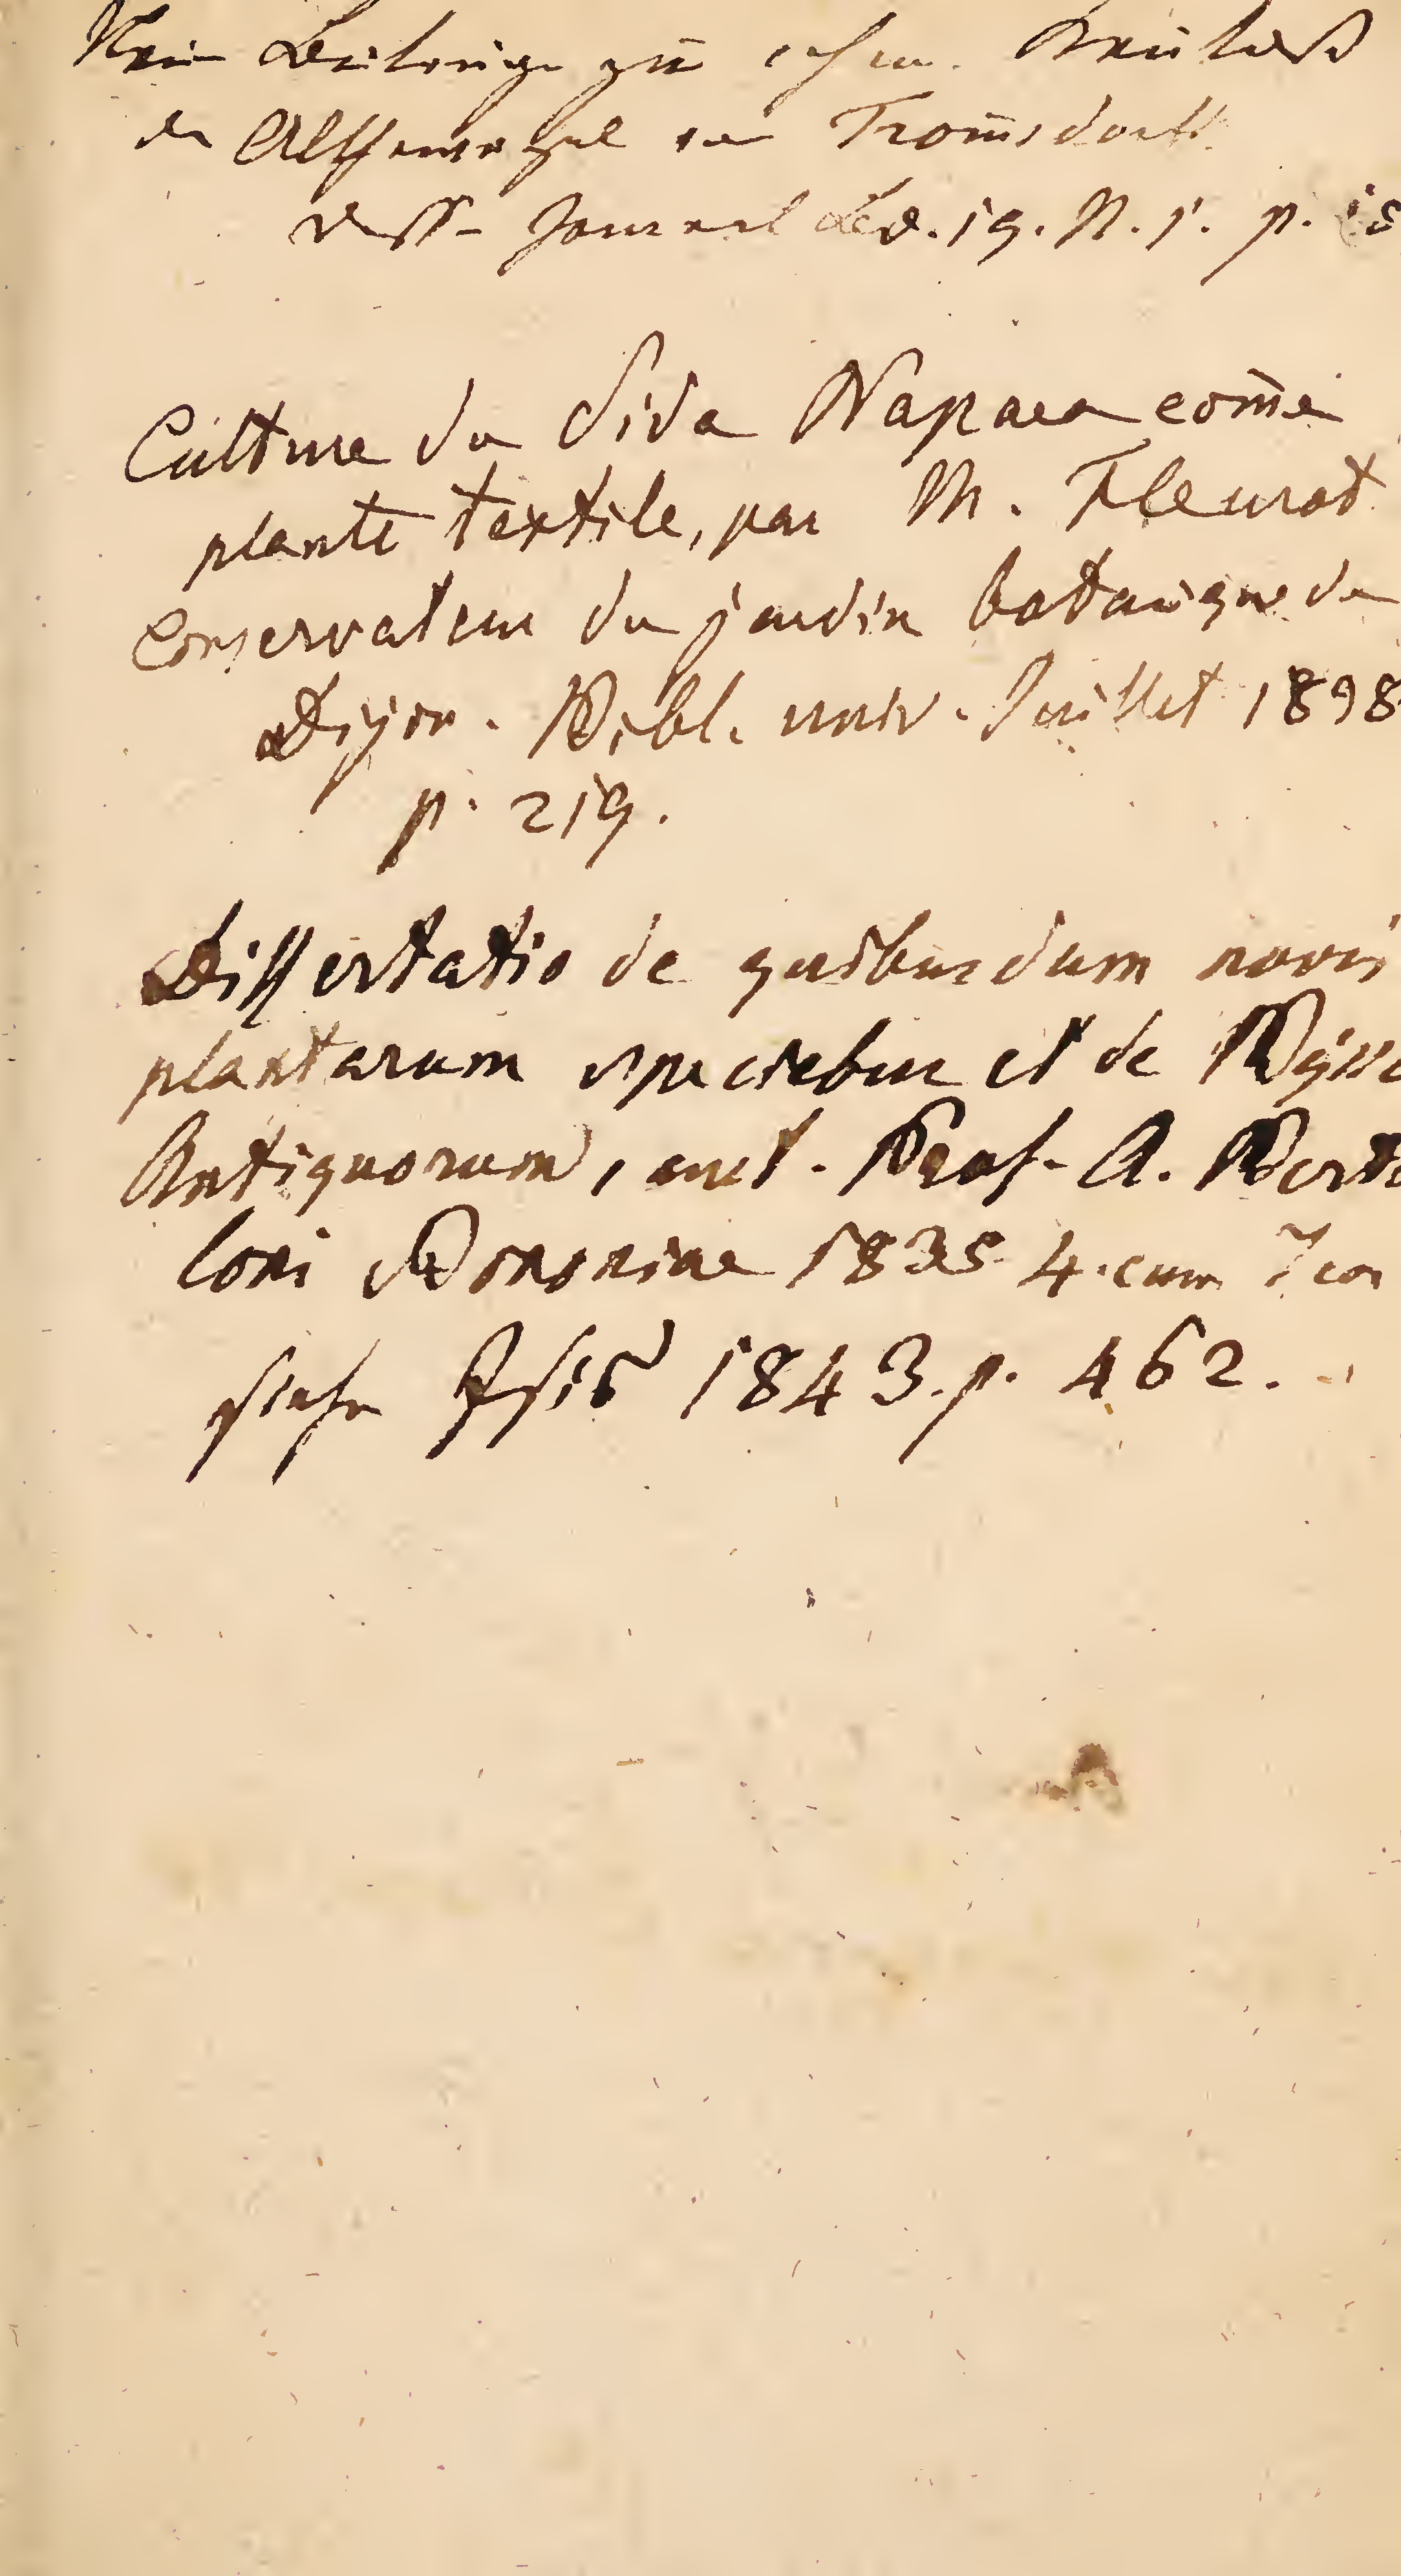 Neue Beiträge zur chem. Kenntniß
der Altheewurzel von Trom̄sdorff.
dess. Journal Bd. 19. N. 1. p.
Culture du Sida Napaea com̄e
plante textile, par M. Fleurot
Conservateur du jardin botanique de
Dijon. Bibl. univ. Juillet 1898
p. 219.
Dissertatio de quibusdam novis
plantarum speciebus et de Bysso
Antiquorum, auct. Prof. A. Berto
loni Bononiae 1835. 4. cum Icon
siehe Isis 1843. p. 462.